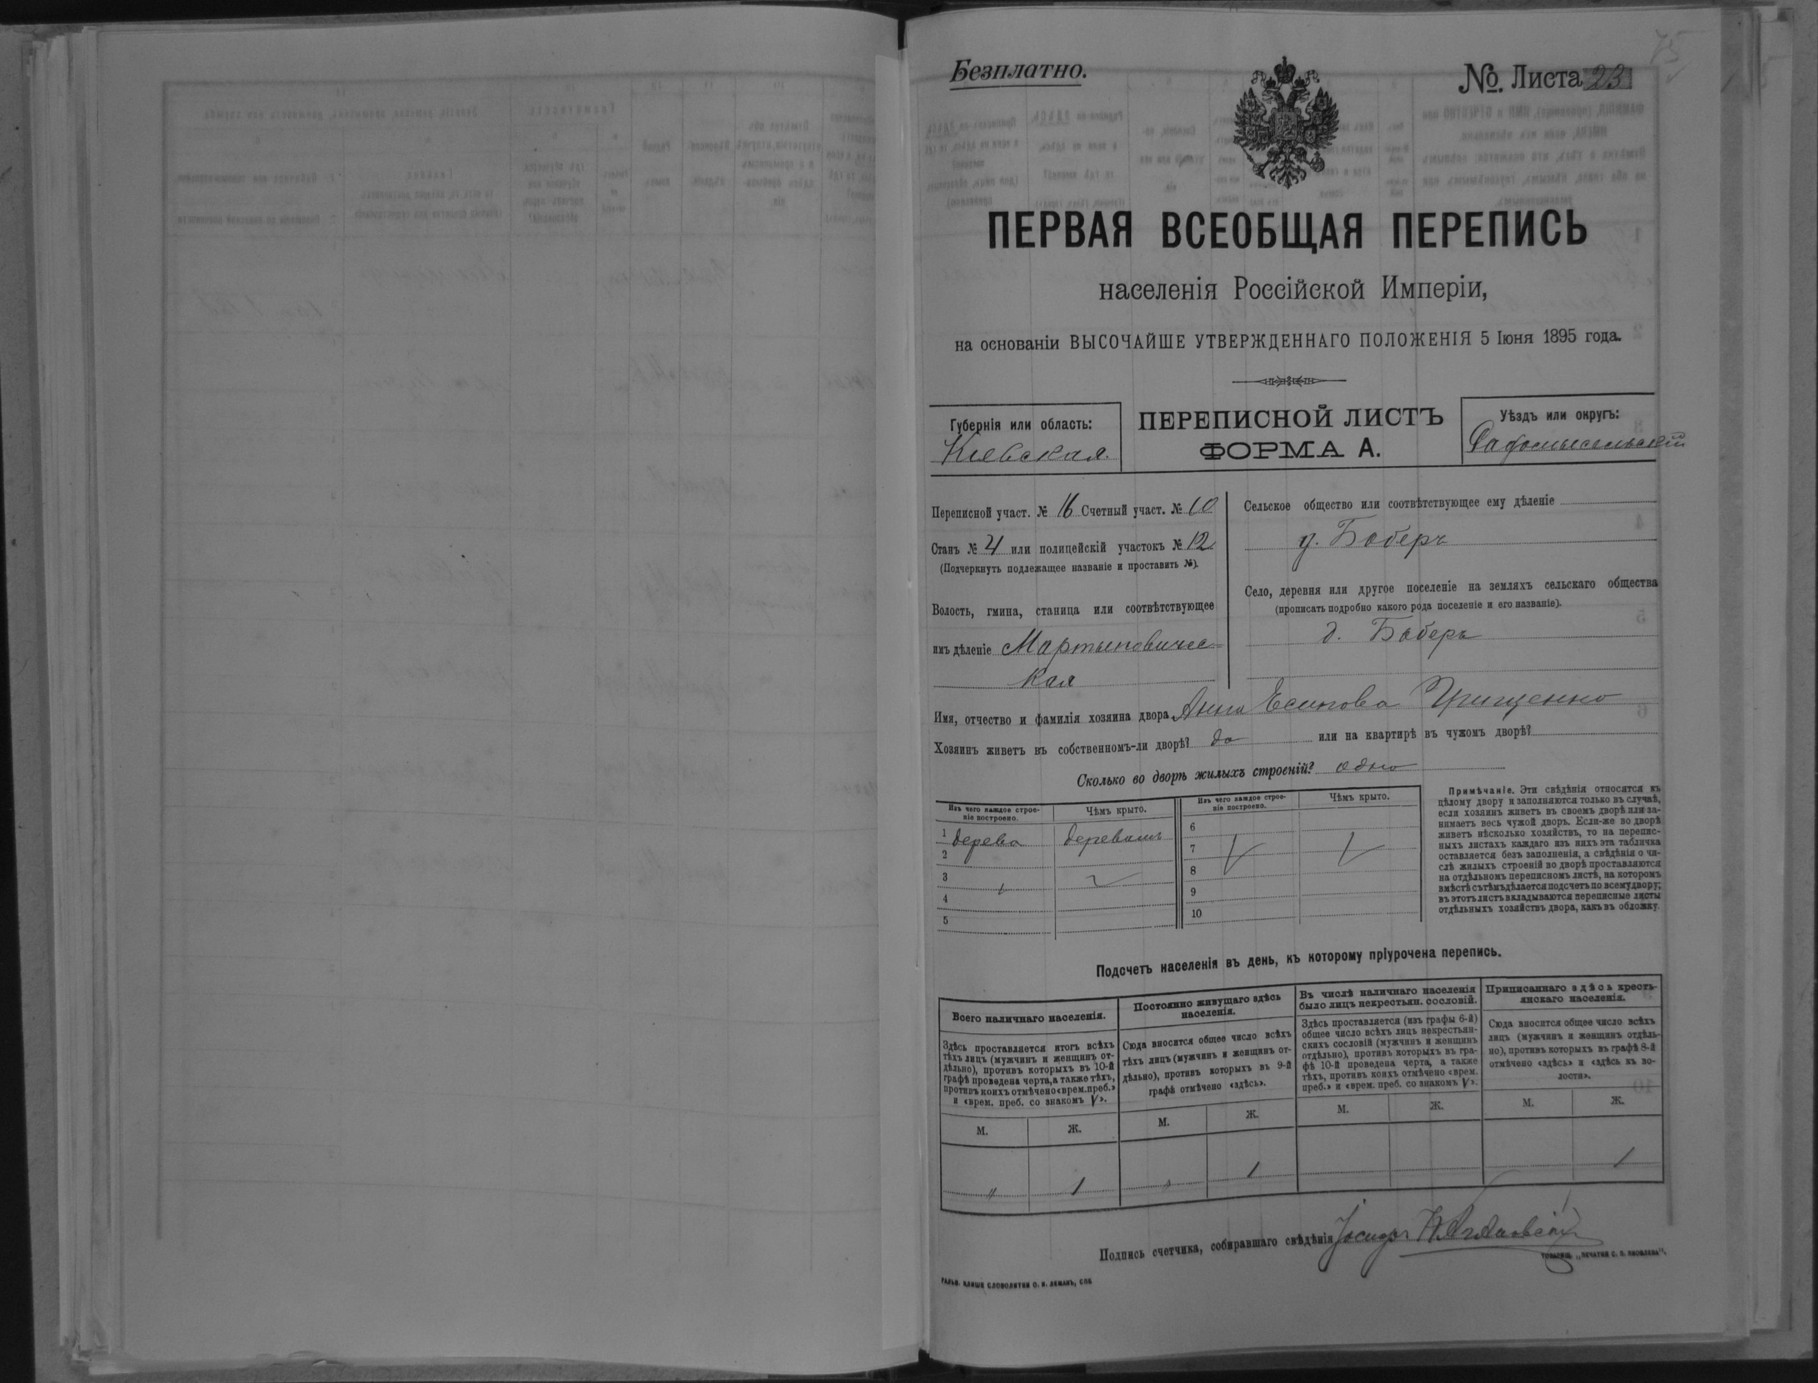 75
Безплатно.
№. Листа 23
ПЕРВАЯ ВСЕОБЩАЯ ПЕРЕПИСЬ
населенія Россійской Имперіи,
на основаніи ВЫСОЧАЙШЕ УТВЕРЖДЕННАГО ПОЛОЖЕНІЯ 5 Іюня 1895 года.
Губернія или область:
Кіевская
ПЕРЕПИСНОЙ ЛИСТЪ
ФОРМА А.
Уѣздъ или округъ:
Радомысльскій
Переписной участ. № 16 Счетный участ. № 10
Станъ № 4 или полицейскій участокъ № 12
(Подчеркнуть подлежащее названіе и проставить №).
Волость, гмина, станица или соотвѣтствующее
имъ дѣленіе Мартыновичес-
кая
Сельское общество или соотвѣтствующее ему дѣленіе
д. Боберъ
Село, деревня или другое поселеніе на земляхъ сельскаго общества
(прописать подробно какого рода поселеніе и его названіе).
д. Боберъ
Имя, отчество и фамилія хозяина двора Анна Есипова Грищенко
Хозяинъ живетъ въ собственномъ-ли дворѣ? да или на квартирѣ въ чужомъ дворѣ?
Сколько во дворѣ жилыхъ строеній? одно
Изъ чего каждое строе-
ніе построено.
Чѣмъ крыто.
1 дерева деревомъ
2
3
4
5
Изъ чего каждое строе-
ніе построено.
Чѣмъ крыто.
6
7
8
9
10
Примѣчаніе. Эти свѣдѣнія относятся къ
цѣлому двору и заполняются только въ случаѣ,
если хозяинъ живетъ въ своемъ дворѣ или за-
нимаетъ весь чужой дворъ. Если-же во дворѣ
живетъ нѣсколько хозяйствъ, то на перепис-
ныхъ листахъ каждаго изъ нихъ эта табличка
оставляется безъ заполненія, а свѣдѣнія о чи-
слѣ жилыхъ строеній во дворѣ проставляются
на отдѣльномъ переписномъ листѣ, на которомъ
вмѣстѣ съ тѣмъ дѣлается подсчетъ по всему двору;
въ этотъ листъ вкладываются переписные листы
отдѣльныхъ хозяйствъ двора, какъ въ обложку.
Подсчетъ населенія въ день, къ которому пріурочена перепись.
Всего наличнаго населенія.
Здѣсь проставляется итогъ всѣхъ
тѣхъ лицъ (мужчинъ и женщинъ от-
дѣльно), противъ которыхъ въ 10-й
графѣ проведена черта, а также тѣхъ,
противъ коихъ отмѣчено «врем. преб.»
и «врем. преб. со знакомъ V».
М. Ж.
" 1
Постоянно живущаго здѣсь
населенія.
Сюда вносится общее число всѣхъ
тѣхъ лицъ (мужчинъ и женщинъ от-
дѣльно), противъ которыхъ въ 9-й
графѣ отмѣчено «здѣсь».
М. Ж.
" 1
Въ числѣ наличнаго населенія
было лицъ некрестьян. сословій.
Здѣсь проставляется (изъ графы 6-й)
общее число всѣхъ лицъ некрестьян-
скихъ сословій (мужчинъ и женщинъ
отдѣльно), противъ которыхъ въ гра-
фѣ 10-й проведена черта, а также
тѣхъ, противъ коихъ отмѣчено «врем.
преб.» и «врем. преб. со знакомъ V».
М. Ж.
Приписаннаго здѣсь кресть-
янскаго населенія.
Сюда вносится общее число всѣхъ
лицъ (мужчинъ и женщинъ отдѣль-
но), противъ которыхъ въ графѣ 8-й
отмѣчено «здѣсь» и «здѣсь къ во-
лости».
М. Ж.
1
Подпись счетчика, собиравшаго свѣдѣнія
ГАЛЬВ. КЛИШЕ СЛОВОЛИТНИ О. И. ЛЕМАНЪ, СПБ
„ПЕЧАТНЯ С. П. ЯКОВЛЕВА“.